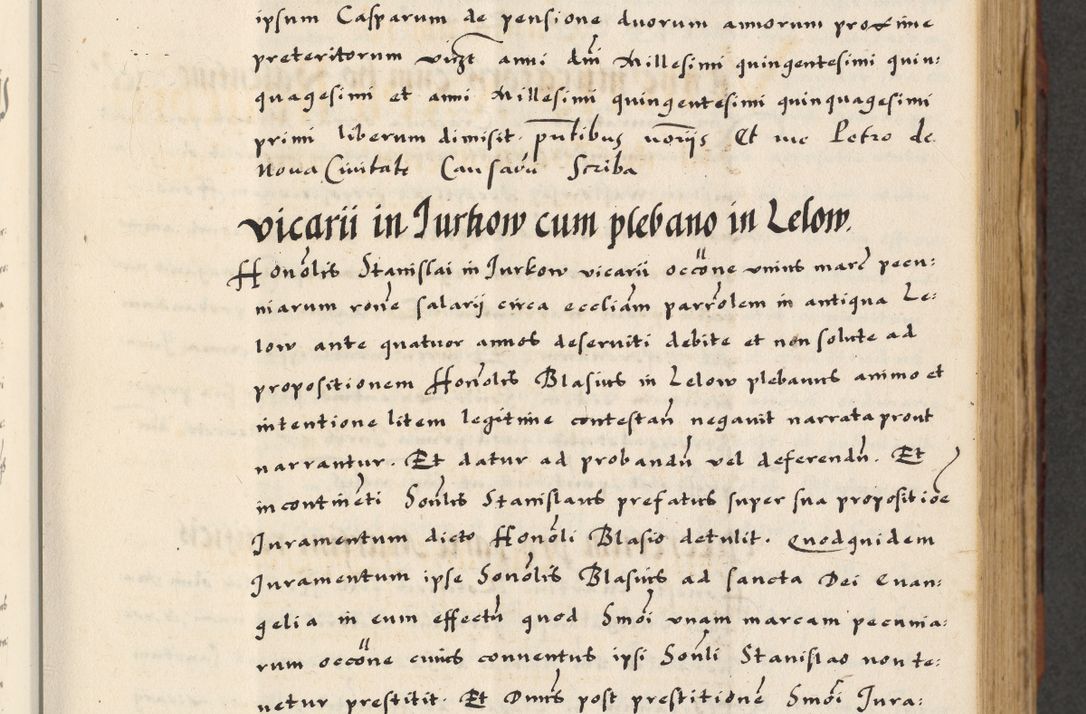 ipsum Casparum de pensione duorum annorum proxime
preteritorum vizt anni dni Millesimi quingentesimi quin:
quagesimi et anni Millesimi quingentesimi quinquagesimi
primi liberum dimisit. pntibus nōriis Et me Petro de
Noua Ciuitate Causarū Scriba
vicarii in Jurkow cum plebano in Lelow.
Honolis Stanislai in Jurkow vicarii occōne vnius marc pecu:
niarum rone salarij circa eccliam parrolem in antiqua Le:
low ante quatuor annos deserviti debite et non solute ad
propositionem Honolis Blasius in Lelow plebanus animo et
intentione litem legitime contestan negauit narrata prout
narrantur. Et datur ad probandū vel deferendū. Et
in continēti Honlis Stanislaus prefatus super sua propositioe
Juramentum dicto Honoli Blasio detulit. Quodquidem
Juramentum ipse Honolis Blasius ad sancta Dei Euan:
gelia in eum effectū quod Smoi vnam marcam pecunia:
rum occōne cuius conuentus ipsi Honli Stanislao non te:
netur prestitit. Et Dnus post prestitionē Smoi Jura: